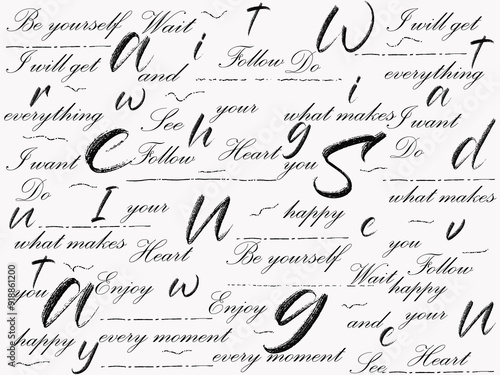 Be yourself Wait T W I will get
I will get a and i Follow Do everything T
everything r w See your what makes i I want a
I want c Follow n Heart g you S Do d
Do what makes
n I your n happy c u
what makes Heart Be yourself you
T Wait Follow
you a Enjoy w Enjoy g happy
and your n
happy y every moment c
every moment See Heart
Adobe Stock | #918861200